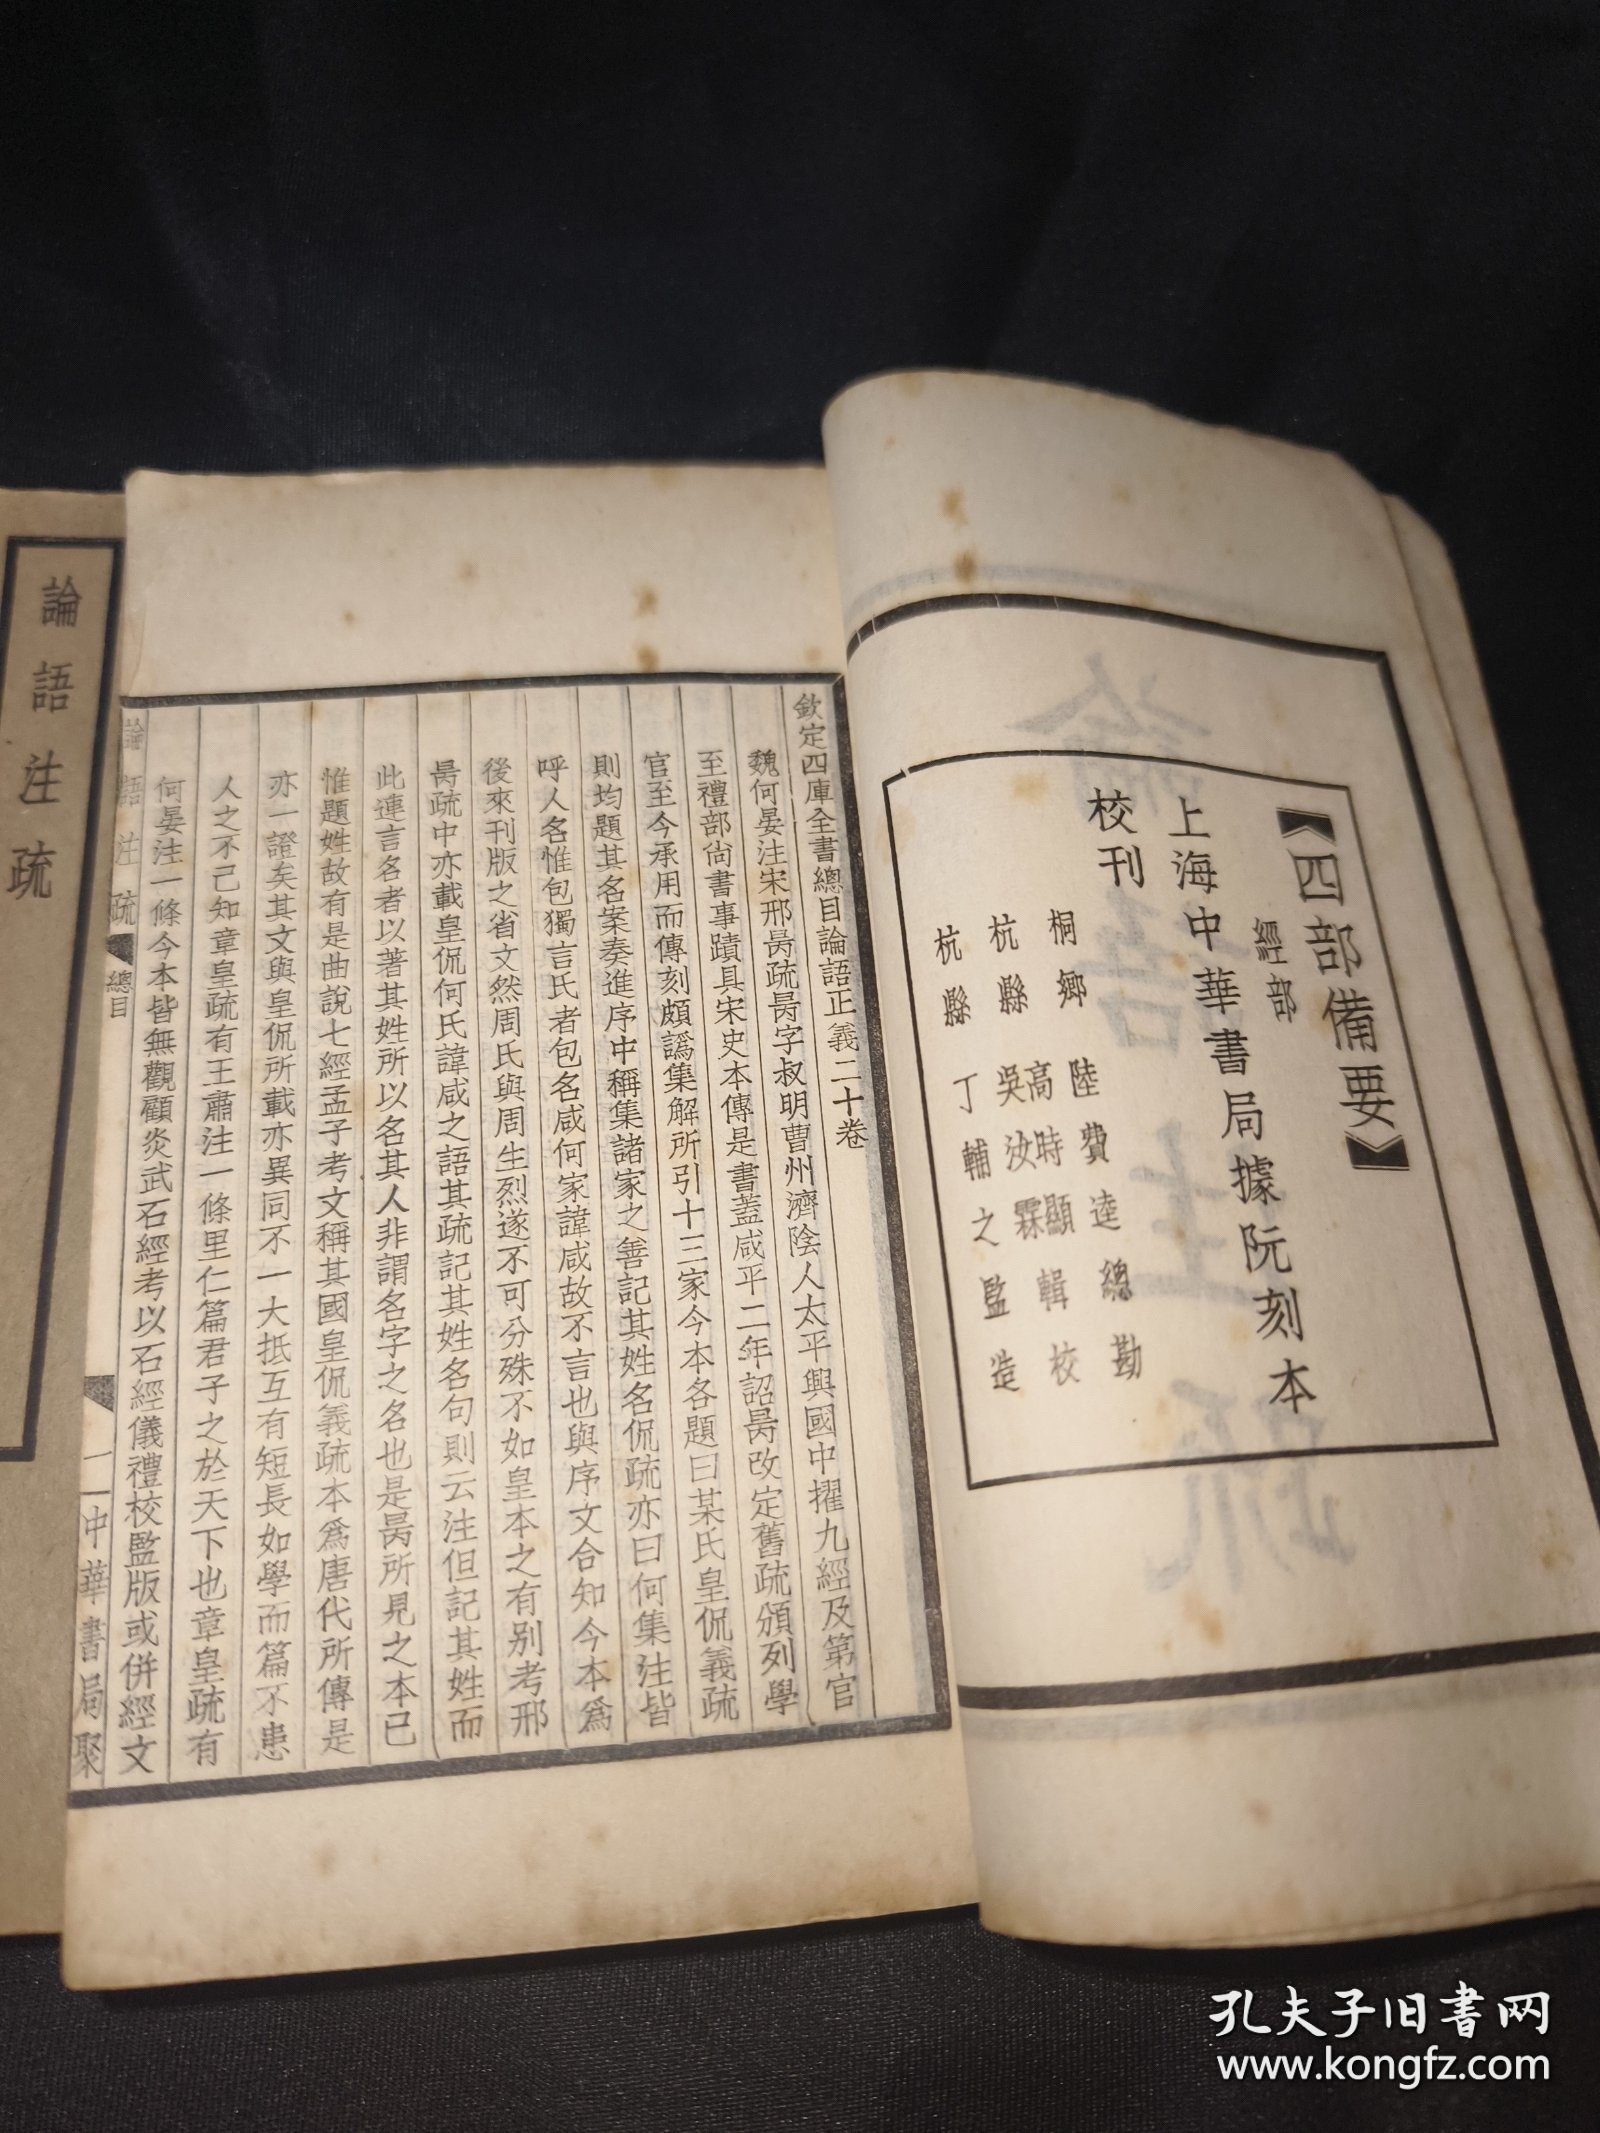 【四部備要】
經部
上海中華書局據阮刻本
校刊
桐鄉 陸費逵總勘
杭縣 高時顯輯校
吳汝霖
杭縣 丁輔之監造
欽定四庫全書總目論語正義二十卷
魏何晏注宋邢昺疏昺字叔明曹州濟陰人太平興國中擢九經及第官
至禮部尙書事蹟具宋史本傳是書蓋咸平二年詔昺改定舊疏頒列學
官至今承用而傳刻頗譌集解所引十三家今本各題曰某氏皇侃義疏
則均題其名案奏進序中稱集諸家之善記其姓名侃疏亦曰何集注皆
呼人名惟包獨言氏者包名咸何家諱咸故不言也與序文合知今本爲
後來刊版之省文然周氏與周生烈遂不可分殊不如皇本之有别考邢
昺疏中亦載皇侃何氏諱咸之語其疏記其姓名句則云注但記其姓而
此連言名者以著其姓所以名其人非謂名字之名也是昺所見之本已
惟題姓故有是曲說七經孟子考文稱其國皇侃義疏本爲唐代所傳是
亦一證矣其文與皇侃所載亦異同不一大抵互有短長如學而篇不患
人之不己知章皇疏有王肅注一條里仁篇君子之於天下也章皇疏有
何晏注一條今本皆無觀顧炎武石經考以石經儀禮校監版或併經文
論語注疏 總目
一 中華書局聚
論語注疏
孔夫子旧书网
www.kongfz.com